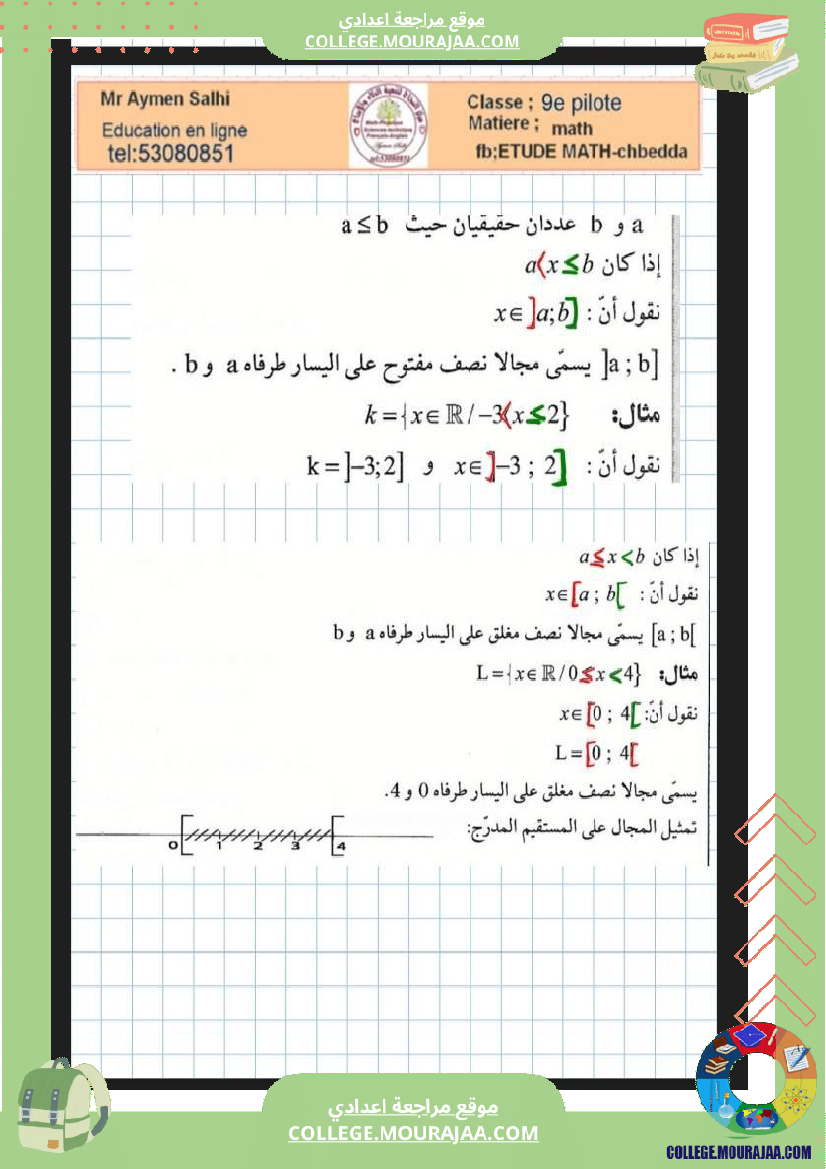 موقع مراجعة اعدادي
COLLEGE.MOURAJAA.COM
Mr Aymen Salhi
Education en ligne
tel:53080851
Classe ; 9e pilote
Matiere ; math
fb;ETUDE MATH-chbedda
a و b عددان حقيقيان حيث a ≤ b
إذا كان a⟨x≤b
نقول أنّ : x∈]a;b]
]a ; b] يسمّى مجالا نصف مفتوح على اليسار طرفاه a و b .
مثال: k={x∈ℝ/−3⟨x≤2}
نقول أنّ : x∈]−3 ; 2] و k=]−3;2]
إذا كان a≤x<b
نقول أنّ : x∈[a ; b[
[a ; b[ يسمّى مجالا نصف مغلق على اليسار طرفاه a و b
مثال: L={x∈ℝ/0≤x<4}
نقول أنّ: x∈[0 ; 4[
L=[0 ; 4[
يسمّى مجالا نصف مغلق على اليسار طرفاه 0 و 4.
تمثيل المجال على المستقيم المدرّج:
0 1 2 3 4
موقع مراجعة اعدادي
COLLEGE.MOURAJAA.COM
COLLEGE.MOURAJAA.COM